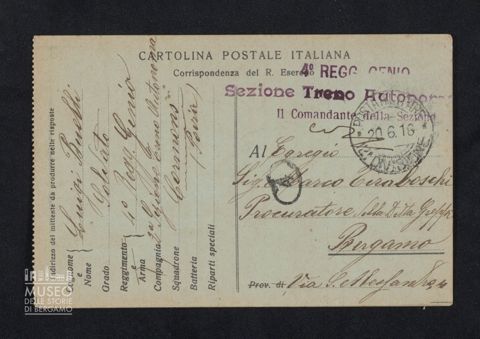 CARTOLINA POSTALE ITALIANA
Corrispondenza del R. Esercito
4° REGG. GENIO
Sezione Treno Autonoma
Il Comandante della Sezione
POSTA MILITARE
20.6.16
Al Egregio
Sig. Marco Tiraboschi
Procuratore
Bergamo
Prov. di Via S. Alessandro
Indirizzo del mittente da produrre nelle risposte
Cognome e Nome Luigi
Grado Soldato
Reggimento 4° Regg. Genio
e
Arma
Compagnia Sezione Treno Autonoma
Squadrone Cormons
Batteria
Riparti speciali
MUSEO
DELLE STORIE
DI BERGAMO